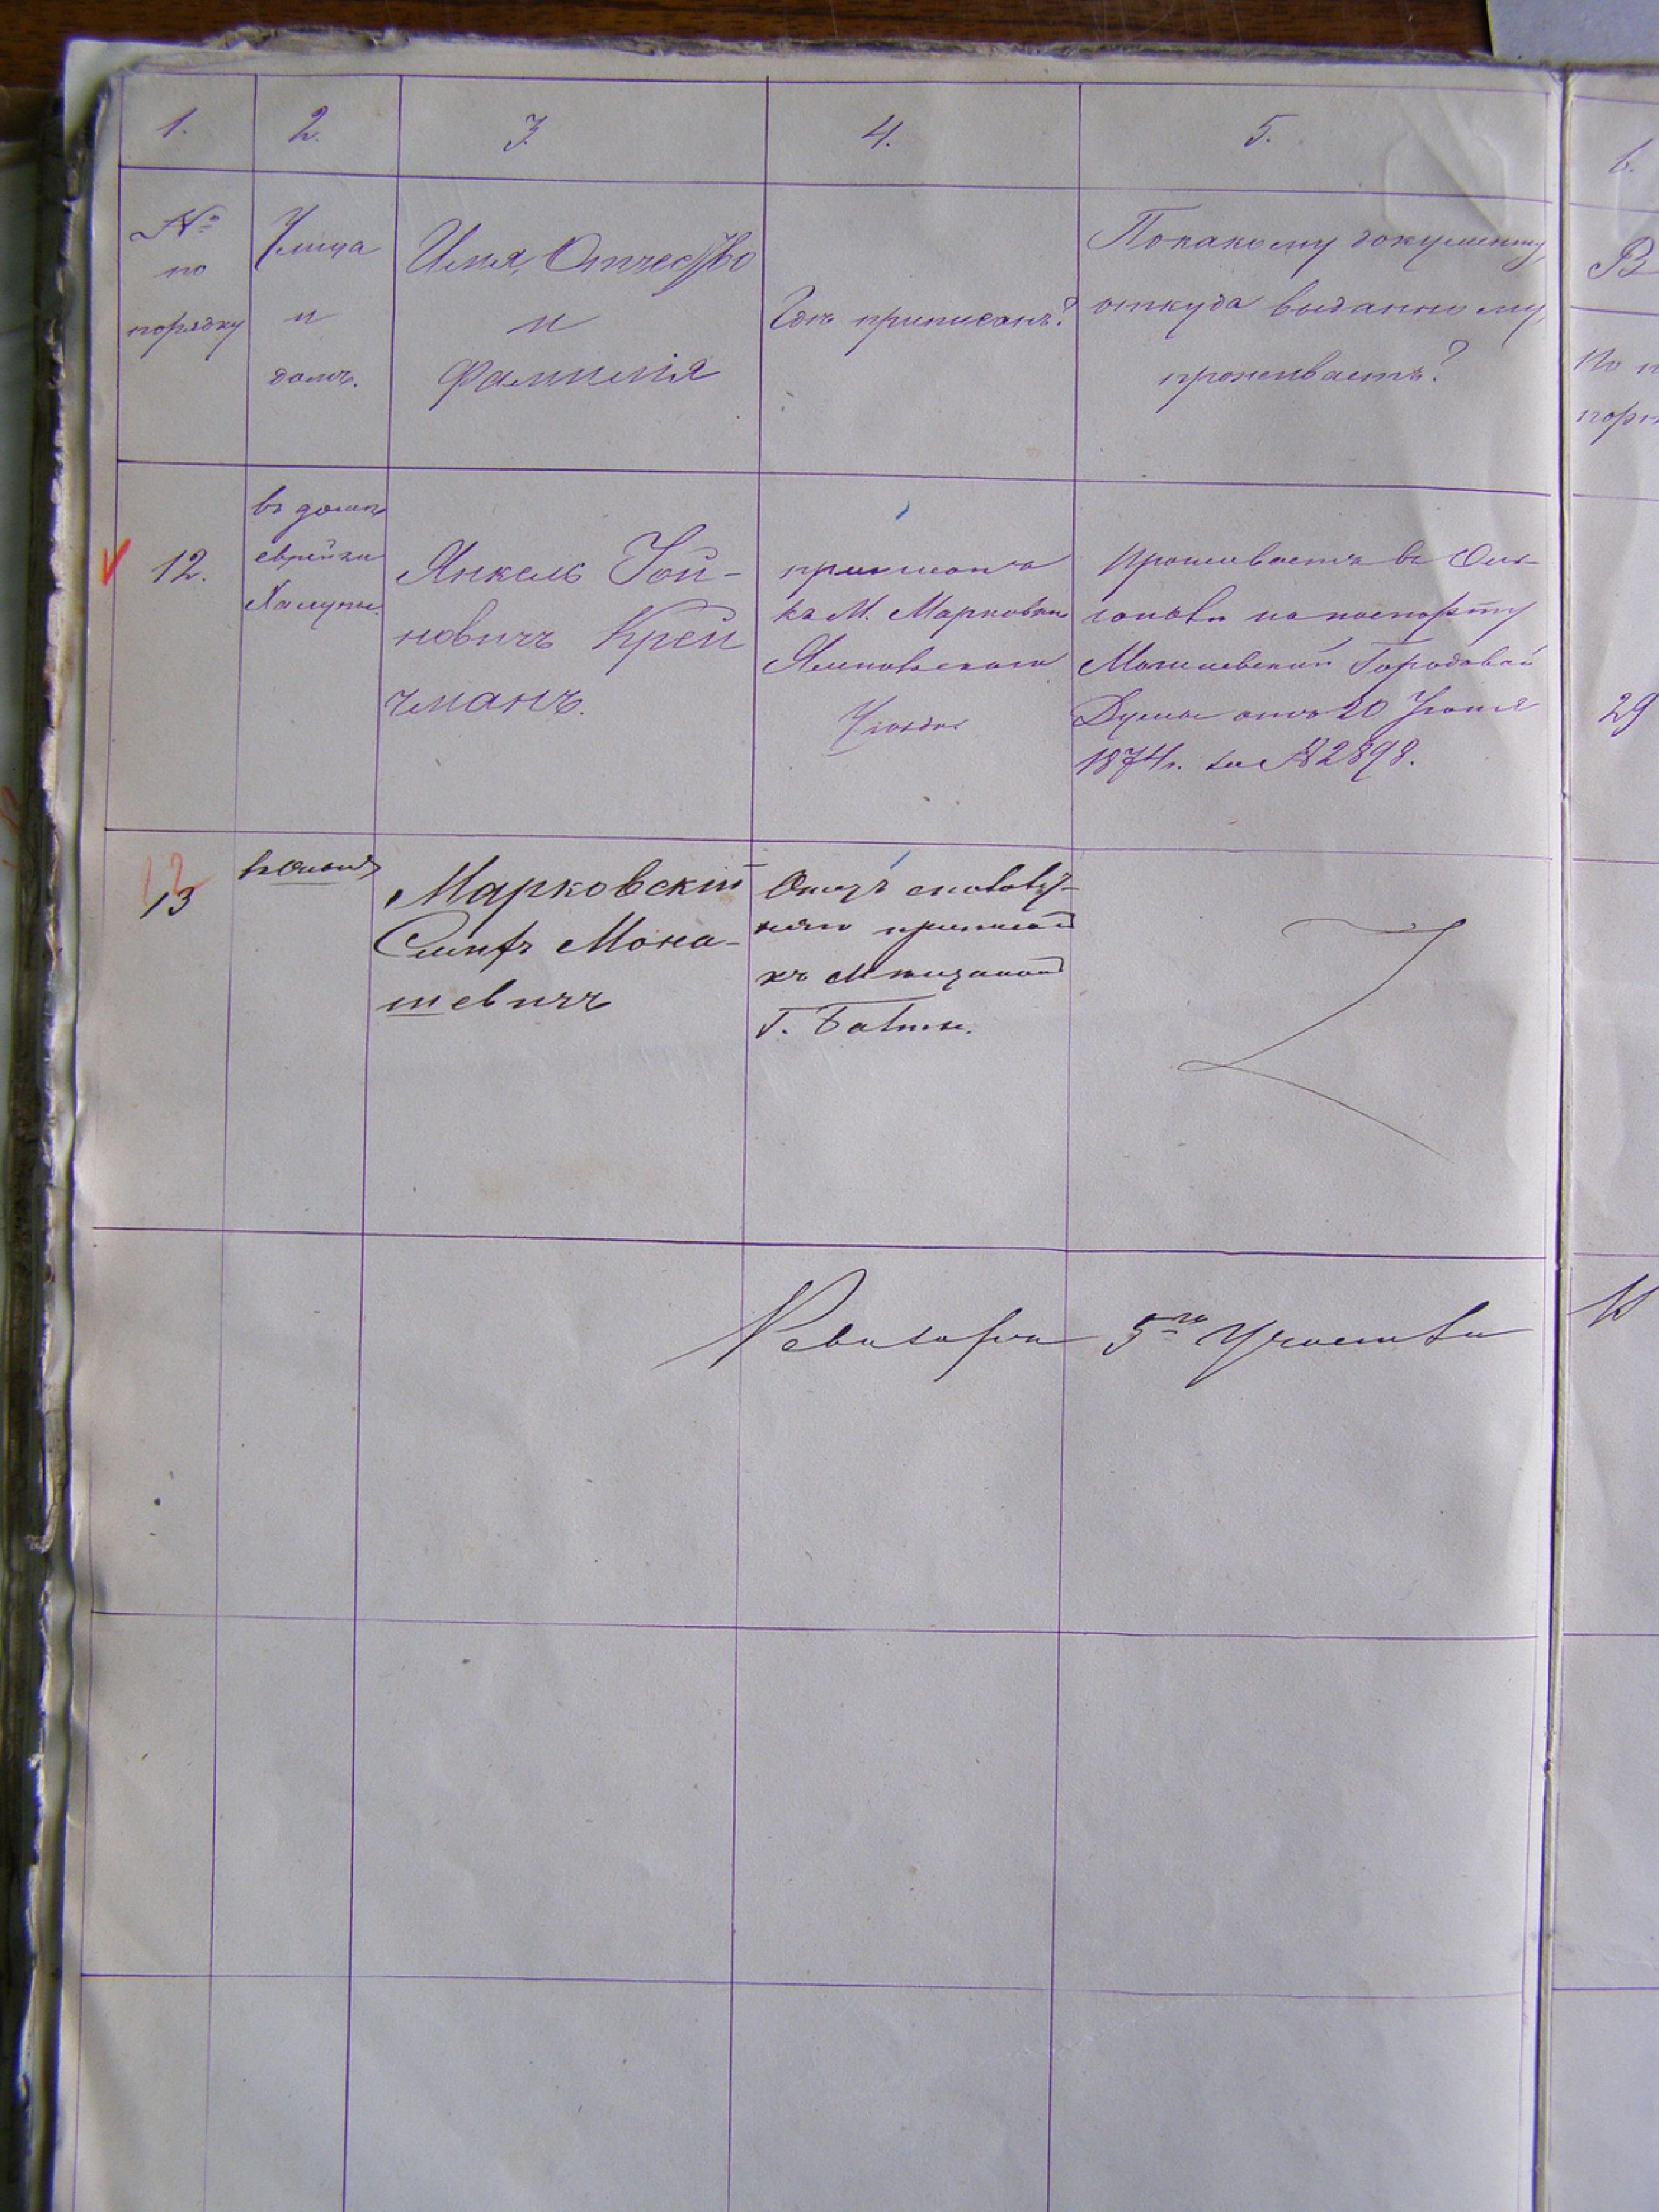 1.
2.
3.
4.
5.
6.
№
по
порядку
Улица
и
домъ.
Имя, Отчество
и
Фамилія
Гдѣ приписанъ?
По какому документу,
откуда выданному,
проживаетъ?
В
По п
12.
въ домѣ
еврейки
Янкель Іой-
новичъ Крей
чманъ.
приписанъ
къ М. Марковкѣ
Ямпольскаго
Уѣзда
Проживаетъ въ
по паспорту
Могилевской Городовой
Думы отъ 20 Іюня
1874 г. за № 2898.
29
12
13
Марковскій
Мона-
шевичъ
Отецъ
приписан
къ
Г. Балты.
Ревизоръ 5го Участка